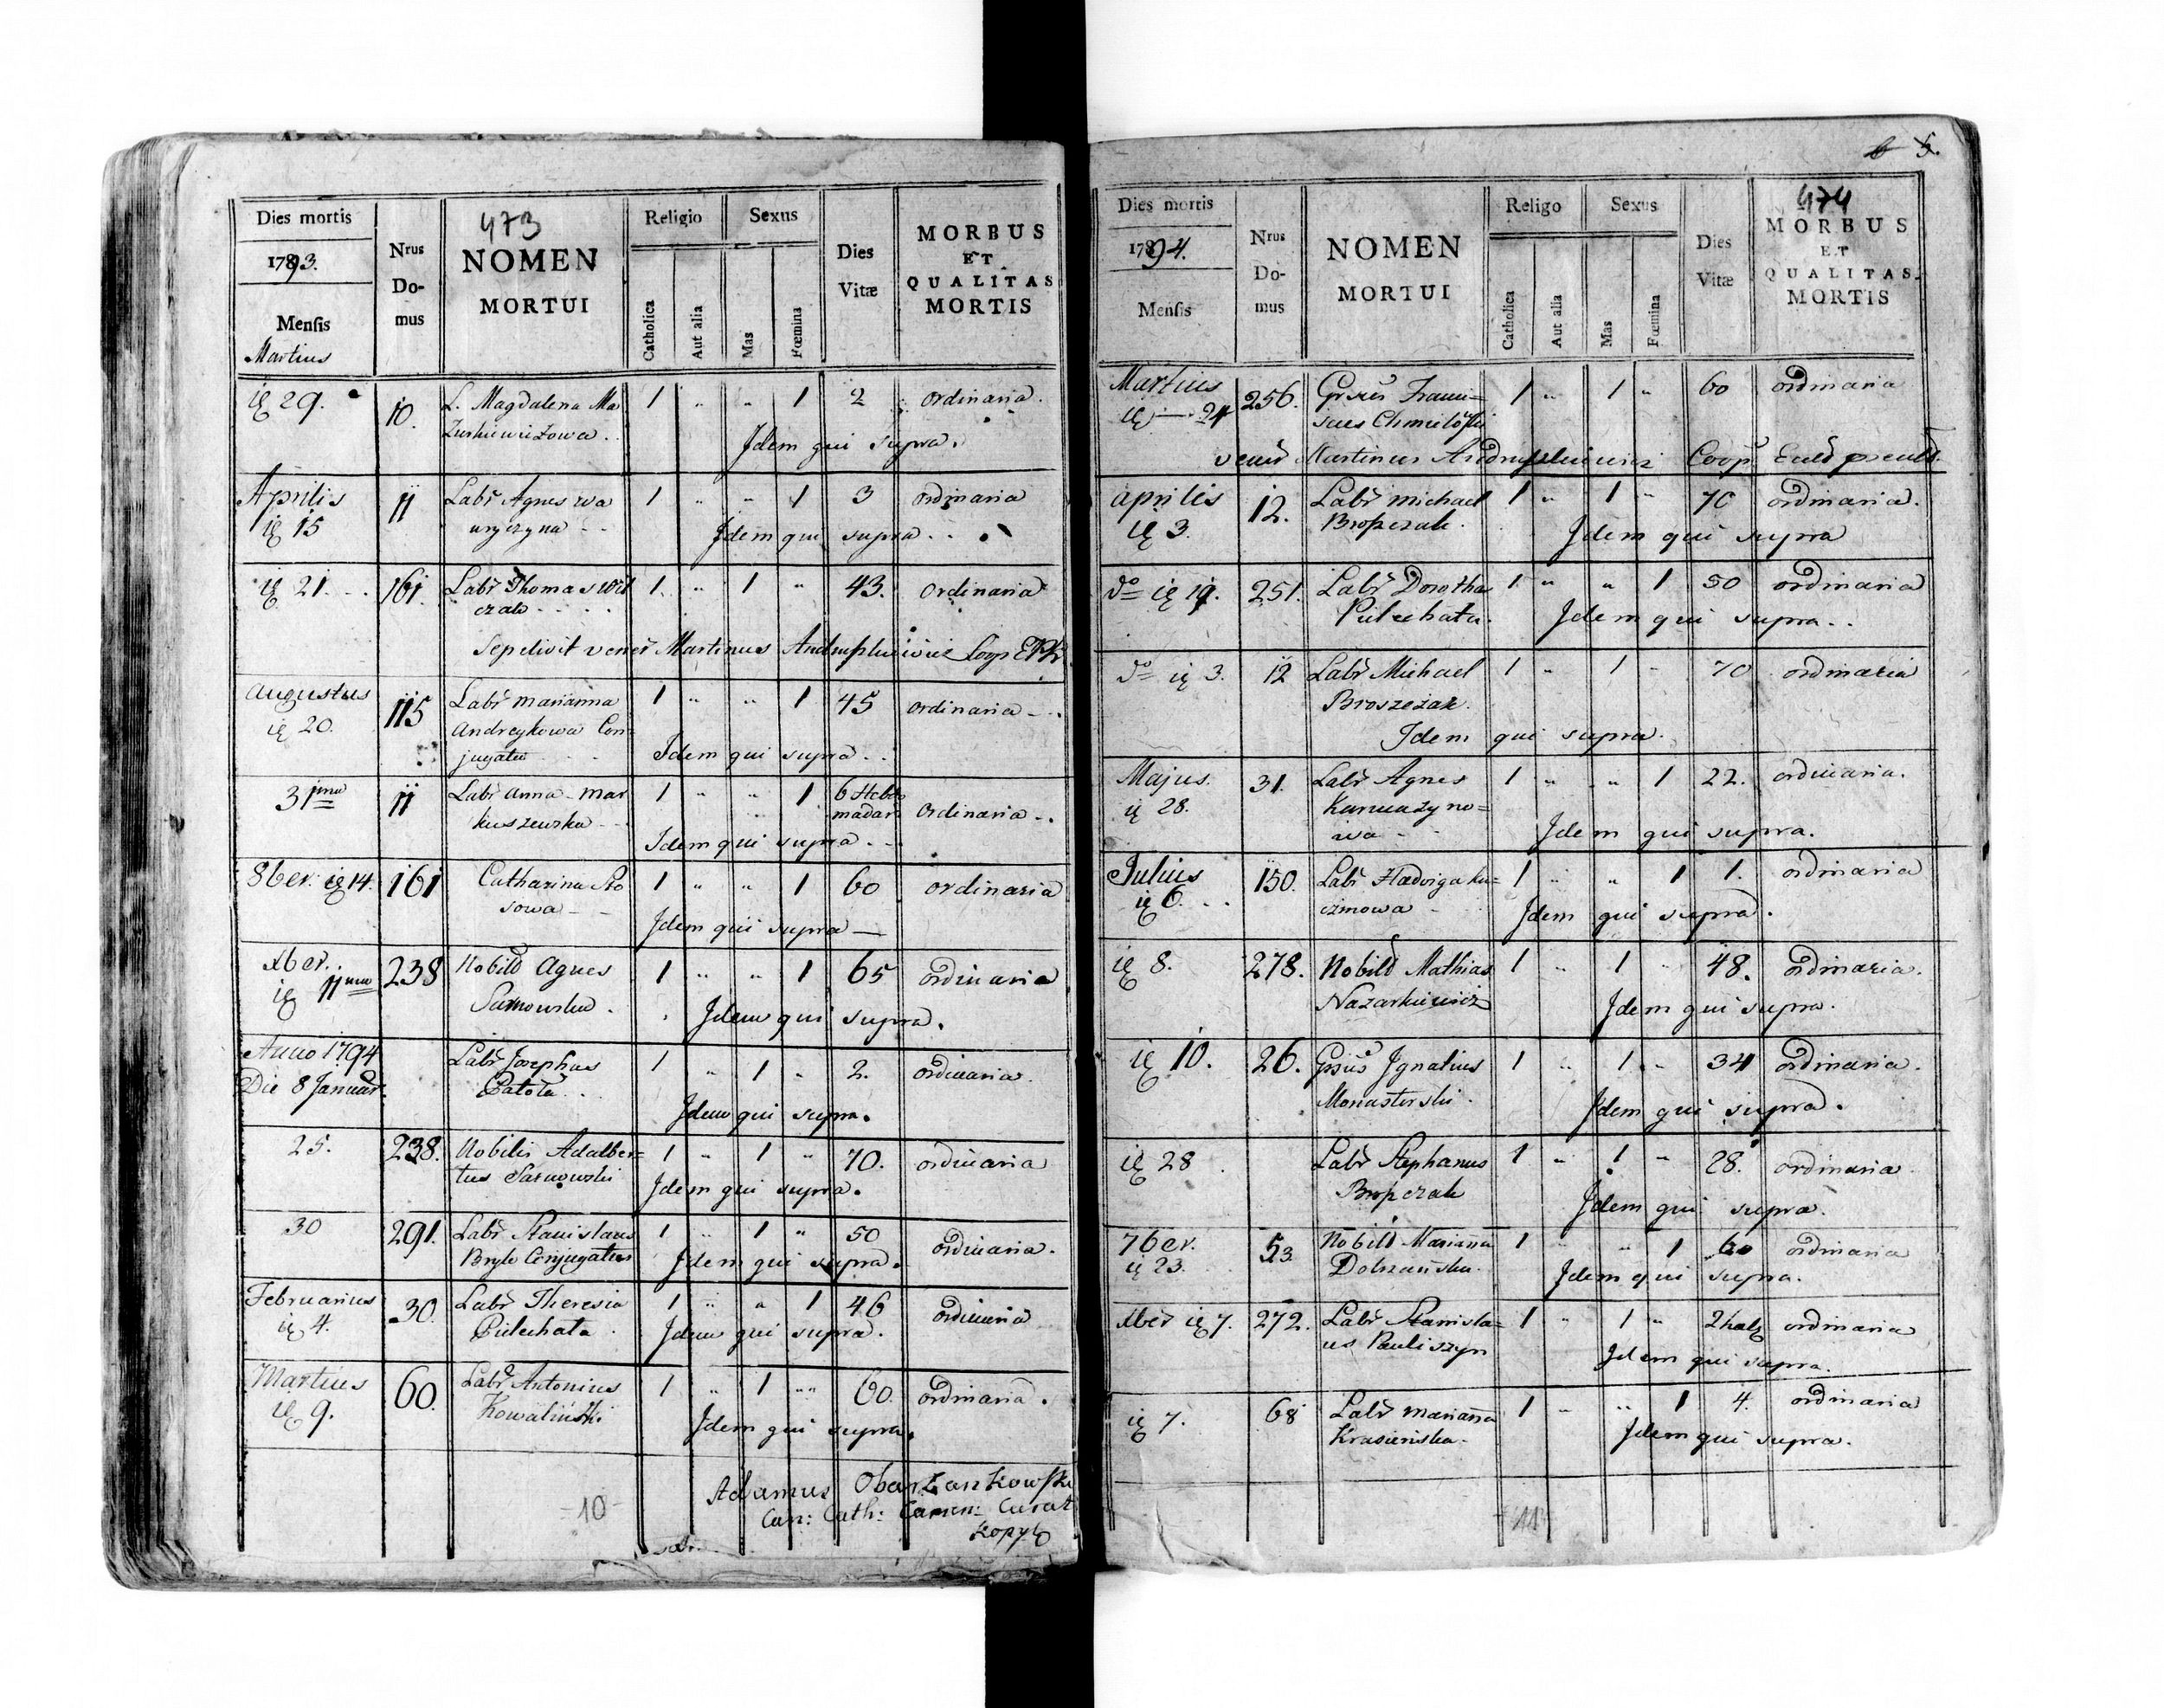 Dies mortis
1793.
Mensis
Martius
Nrus
Do-
mus
473
NOMEN
MORTUI
Religio
Catholica
Aut alia
Sexus
Mas
Fœmina
Dies
Vitæ
MORBUS
ET
QUALITAS
MORTIS
29. 10. L. Magdalena Ma 1 " " 1 2 ordinaria.
Idem qui supra.
Aprilis 11 Labr Agnes Wa 1 " " 1 3 ordinaria
15
Idem qui supra
21. 161. Labr Thomas Wit 1 " 1 " 43. ordinaria
czak
Sepelivit vener Martinus Coop
Augustus 115 Labr Marianna 1 " " 1 45 ordinaria
20. Andreykowa Con
jugata Idem qui supra
31ma 11 Labr Anna Mar 1 " " 1 6 Hebdo
kuszewska madar ordinaria
Idem qui supra
8ber. 14. 161 Catharina Sto 1 " " 1 60 ordinaria
sowa
Idem qui supra
xber. 238 Nobilis Agnes 1 " " 1 65 ordinaria
11ma Sarnowska.
Idem qui supra.
Anno 1794 Labr Josephus 1 " 1 " 2. ordinaria.
Die 8 Januar.
Idem qui supra.
25. 238. Nobilis Adalber= 1 " 1 " 70. ordinaria
tus Sarnowski Idem qui supra.
30 291. Labr Stanislaus 1 " 1 " 50 ordinaria.
Bryk Conjugatus Idem qui supra.
Februarius 30. Labr Theresia 1 " " 1 46 ordinaria
4. Pielechata Idem qui supra.
Martius 60. Labr Antonius 1 " 1 " 60. ordinaria.
9. Kowalinski
Idem qui supra.
10
Adamus Obarzankowski
Can: Cath: Camen: Curat
Kopyt
5.
Dies mortis
1794.
Mensis
Nrus
Do-
mus
NOMEN
MORTUI
Religo
Catholica
Aut alia
Sexus
Mas
Fœmina
Dies
Vitæ
474
MORBUS
ET
QUALITAS
MORTIS
Martius 256. 1 " 1 " 60 ordinaria
24
Martinus Coop
Aprilis 12. Labr Michael 1 " 1 " 70 ordinaria.
3. Broszczak.
Idem qui supra
do 19. 251. Labr Dorotha 1 " " 1 50 ordinaria
Pielechata. Idem qui supra
do 3. 12 Labr Michael 1 " 1 " 70 ordinaria
Broszczak.
Idem qui supra.
Majus. 31. Labr Agnes 1 " " 1 22. ordinaria.
28. Karmazyno=
wa Idem qui supra.
Julius 150. Labr Hedviga Ku= 1 " " 1 1. ordinaria
6. czmowa Idem qui supra.
8. 278. Nobilis Mathias 1 " 1 " 48. ordinaria.
Nazarkiewicz
Idem qui supra.
10. 26. Ignatius 1 " 1 " 34 ordinaria.
Monasterski.
Idem qui supra.
28 Labr Stephanus 1 " 1 " 28. ordinaria
Broszczak
Idem qui supra.
7ber. 53 Nobilis Marianna 1 " " 1 60 ordinaria
23. Dolzanska. Idem qui supra.
xber 7. 272. Labr Stanisla= 1 " 1 " 2 halb ordinaria
us Pauliszyn
Idem qui supra.
7. 68 Labr Marianna 1 " " 1 4. ordinaria
Krasienska. Idem qui supra.
11